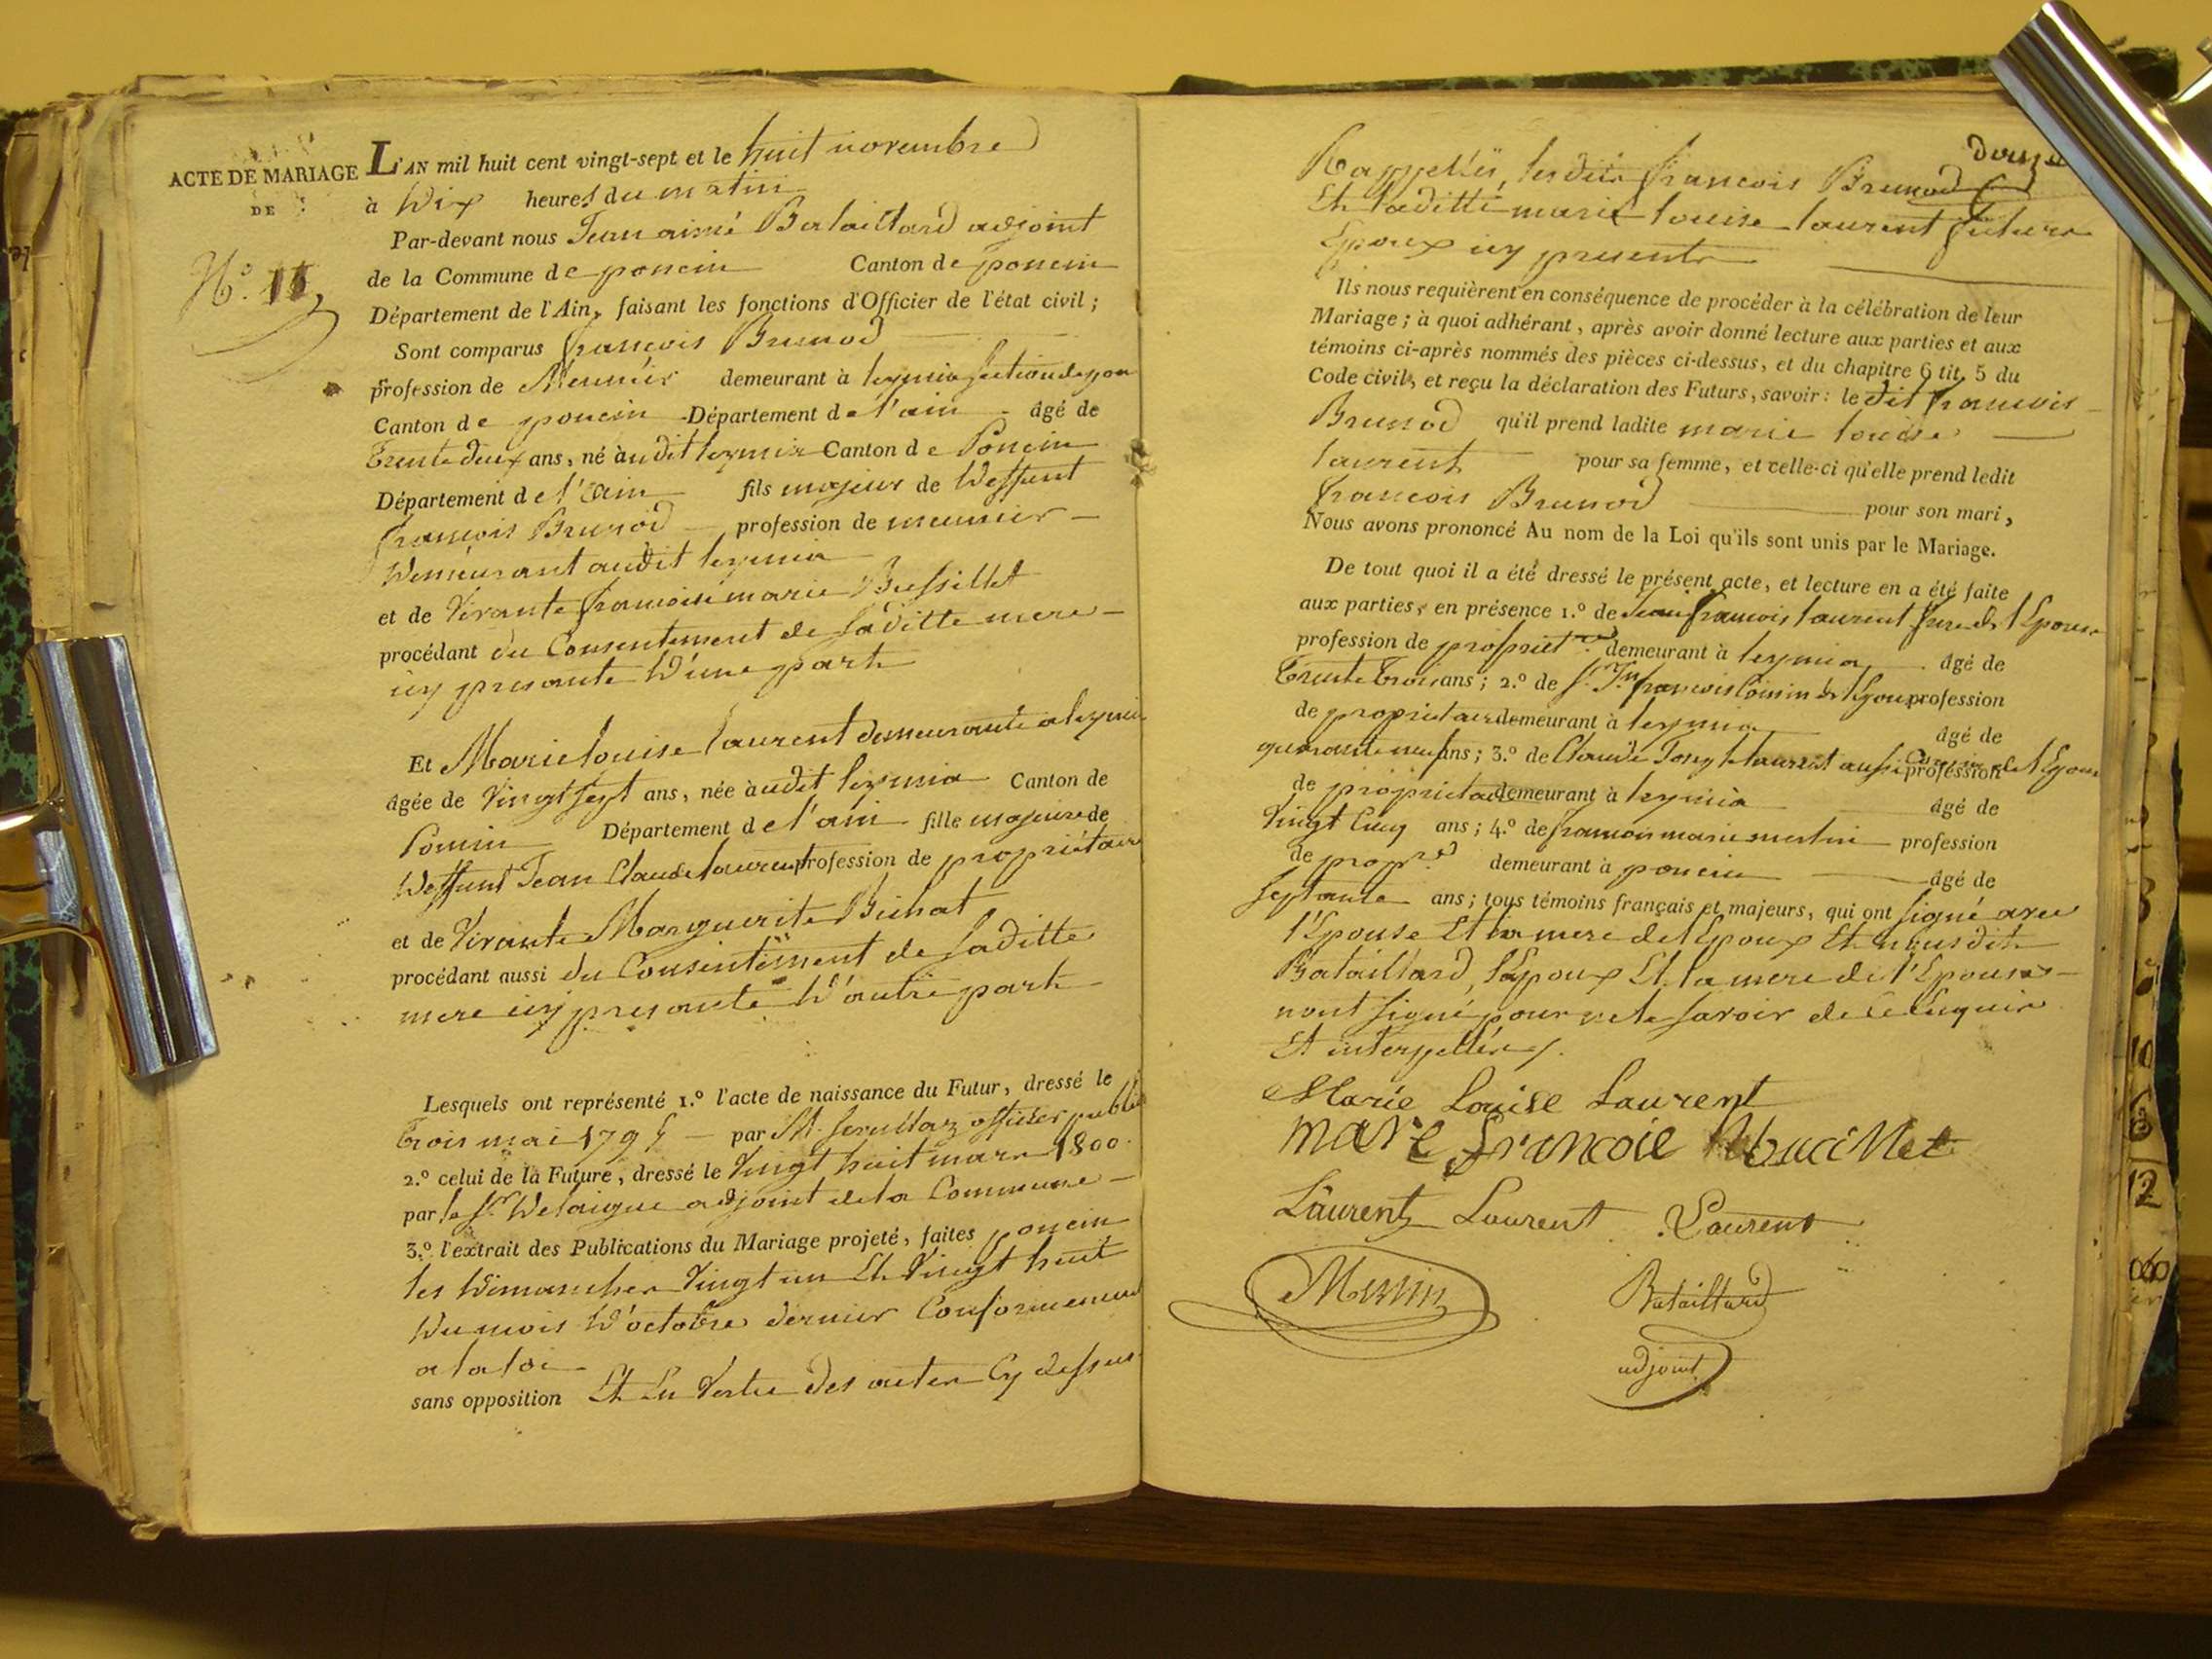 ACTE DE MARIAGE
DE
N.° 11
L'AN mil huit cent vingt-sept et le huit novembre
à Dix heures du matin
Par-devant nous Jean aimé Bataillard adjoint
de la Commune de poncin Canton de poncin
Département de l'Ain, faisant les fonctions d'Officier de l'état civil ;
Sont comparus francois Brunod
profession de Meunier demeurant à leymia section de pon
Canton de poncin Département de l'ain âgé de
Trente deux ans, né à udit leymia Canton de Poncin
Département de l'ain fils majeur de Deffunt
francois Brunod profession de meunier
Demeurant audit leymia
et de Vivante francoise marie Bussillet
procédant du Consentement de sa ditte mere
icy presante D'une part
Et Marie louise laurent demeurante a leymia
âgée de Vingt sept ans, née à udit leymia Canton de
Poncin Département de l'ain fille majeure de
Deffunt Jean Claude laurent profession de propriétaire
et de Vivante Marguerite Bichat
procédant aussi du Consentement de sa ditte
mere icy presante D'autre part
Lesquels ont représenté 1.° l'acte de naissance du Futur, dressé le
Trois mai 1795 par M. officier public
2.° celui de la Future, dressé le Vingt huit mars 1800
par le Sr Delaigue adjoint de la Commune
3.° l'extrait des Publications du Mariage projeté, faites poncin
les Dimanches Vingt un Et Vingt huit
Du mois D'octobre dernier Conformement
a la loi
sans opposition Et En Vertu des actes Cy dessus
douze
Rappellés, lesdits francois Brunod
Et laditte marie louise laurent futurs
Epoux icy presents
Ils nous requièrent en conséquence de procéder à la célébration de leur
Mariage ; à quoi adhérant, après avoir donné lecture aux parties et aux
témoins ci-après nommés des pièces ci-dessus, et du chapitre 6 tit. 5 du
Code civil, et reçu la déclaration des Futurs, savoir : le dit francois
Brunod qu'il prend ladite marie louise
laurent pour sa femme, et celle-ci qu'elle prend ledit
francois Brunod pour son mari,
Nous avons prononcé Au nom de la Loi qu'ils sont unis par le Mariage.
De tout quoi il a été dressé le présent acte, et lecture en a été faite
aux parties, en présence 1.° de Jean francois laurent frere de l'Epouse
profession de propriet.re demeurant à leymia âgé de
Trente Trois ans ; 2.° de francois Cousin de l'Epouse profession
de propriétaire demeurant à leymia âgé de
quarante neuf ans ; 3.° de Claude Joseph laurent aussi Cousin de l'Epouse profession
de propriétaire demeurant à leymia âgé de
Vingt Cinq ans ; 4.° de francois marie merlin profession
de prop.re demeurant à poncin âgé de
Septante ans ; tous témoins français et majeurs, qui ont signé avec
l'Epouse Et la mere de l'Epoux Et nous dit
Bataillard, l'Epoux Et la mere de l'Epouse
n'ont signé pour ne le savoir de ce Enquis
Et interpellés
Marie Louise Laurent
Laurent Laurent Laurent
Merlin
Bataillard
adjoint
10
12